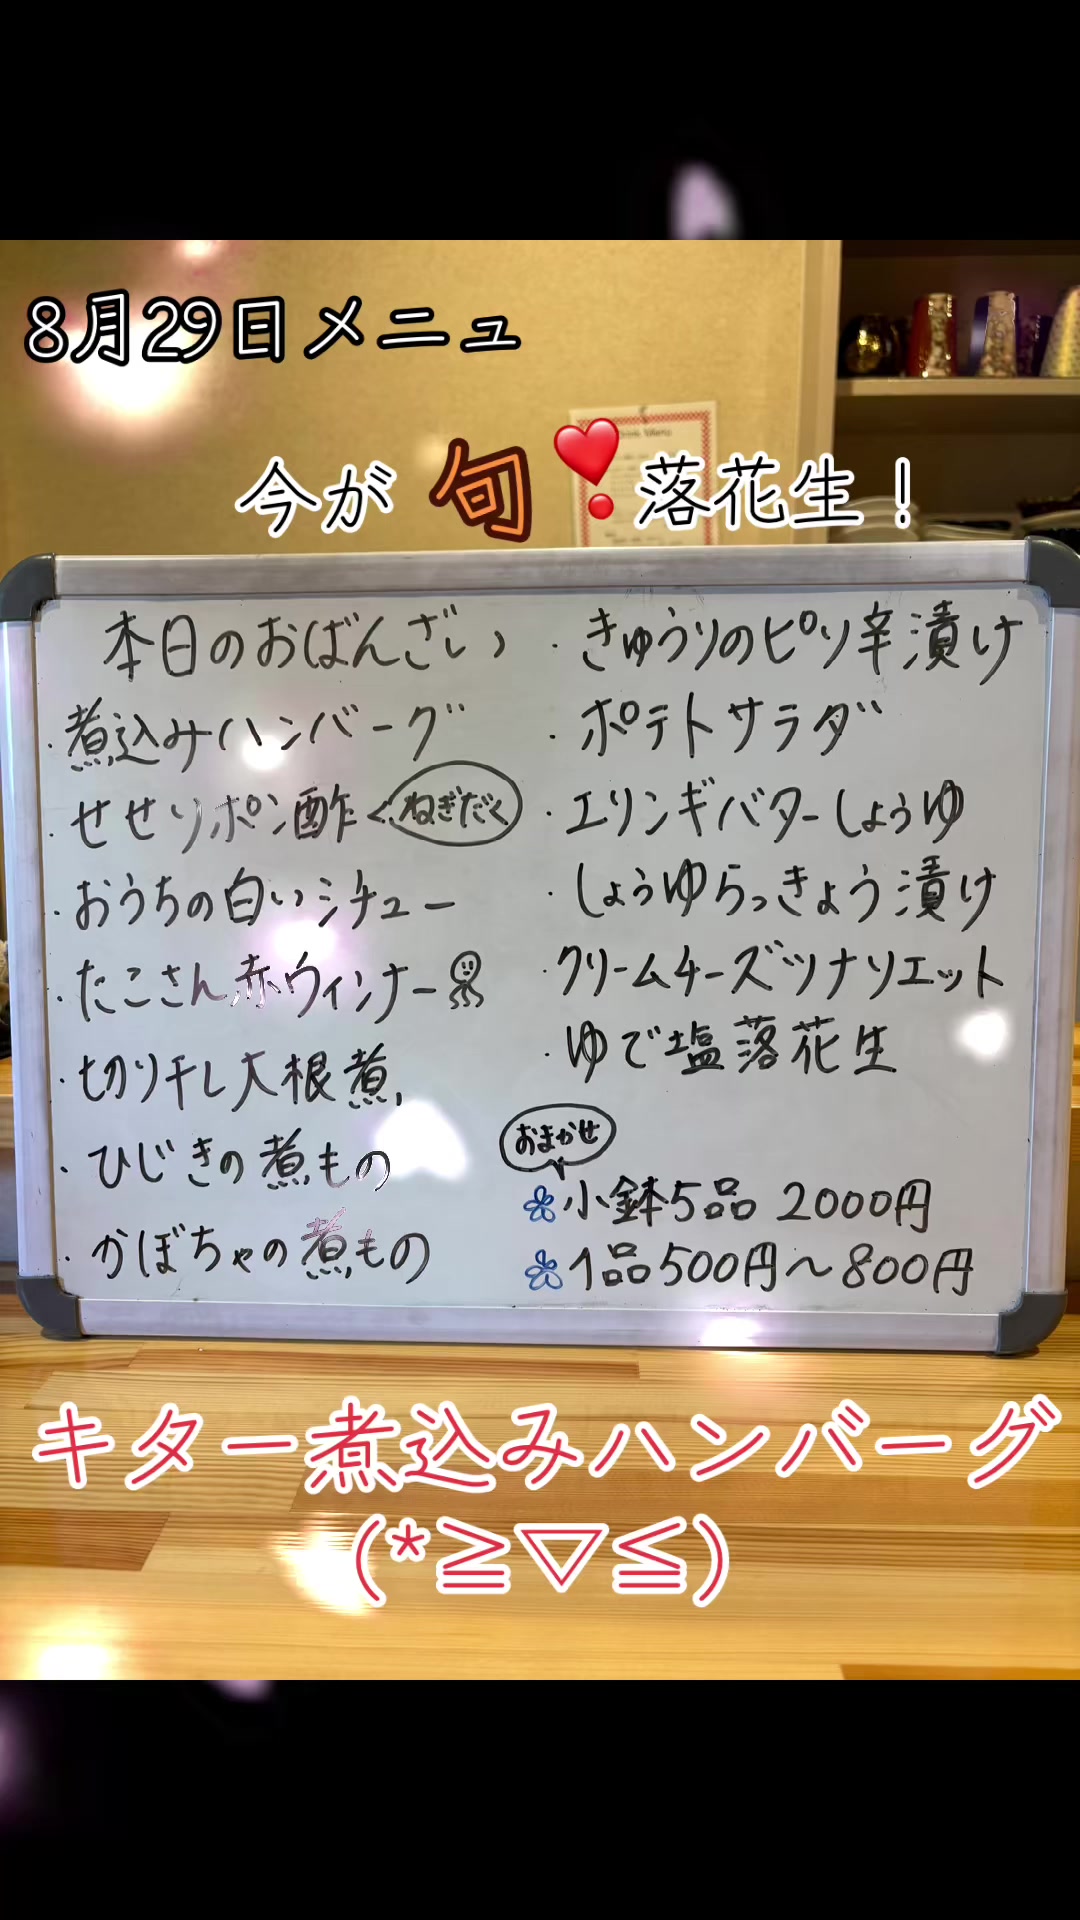 8月29日メニュ
今が 旬❣️落花生！
本日のおばんざい
・煮込みハンバーグ
・せせりポン酢
ねぎだく
・おうちの白いシチュー
・たこさん赤ウィンナー
・切り干し大根煮
・ひじきの煮もの
・かぼちゃの煮もの
・きゅうりのピリ辛漬け
・ポテトサラダ
・エリンギバターしょうゆ
・しょうゆらっきょう漬け
・クリームチーズツナリエット
・ゆで塩落花生
おまかせ
小鉢5品 2000円
1品500円〜800円
キター煮込みハンバーグ
(*≧▽≦)